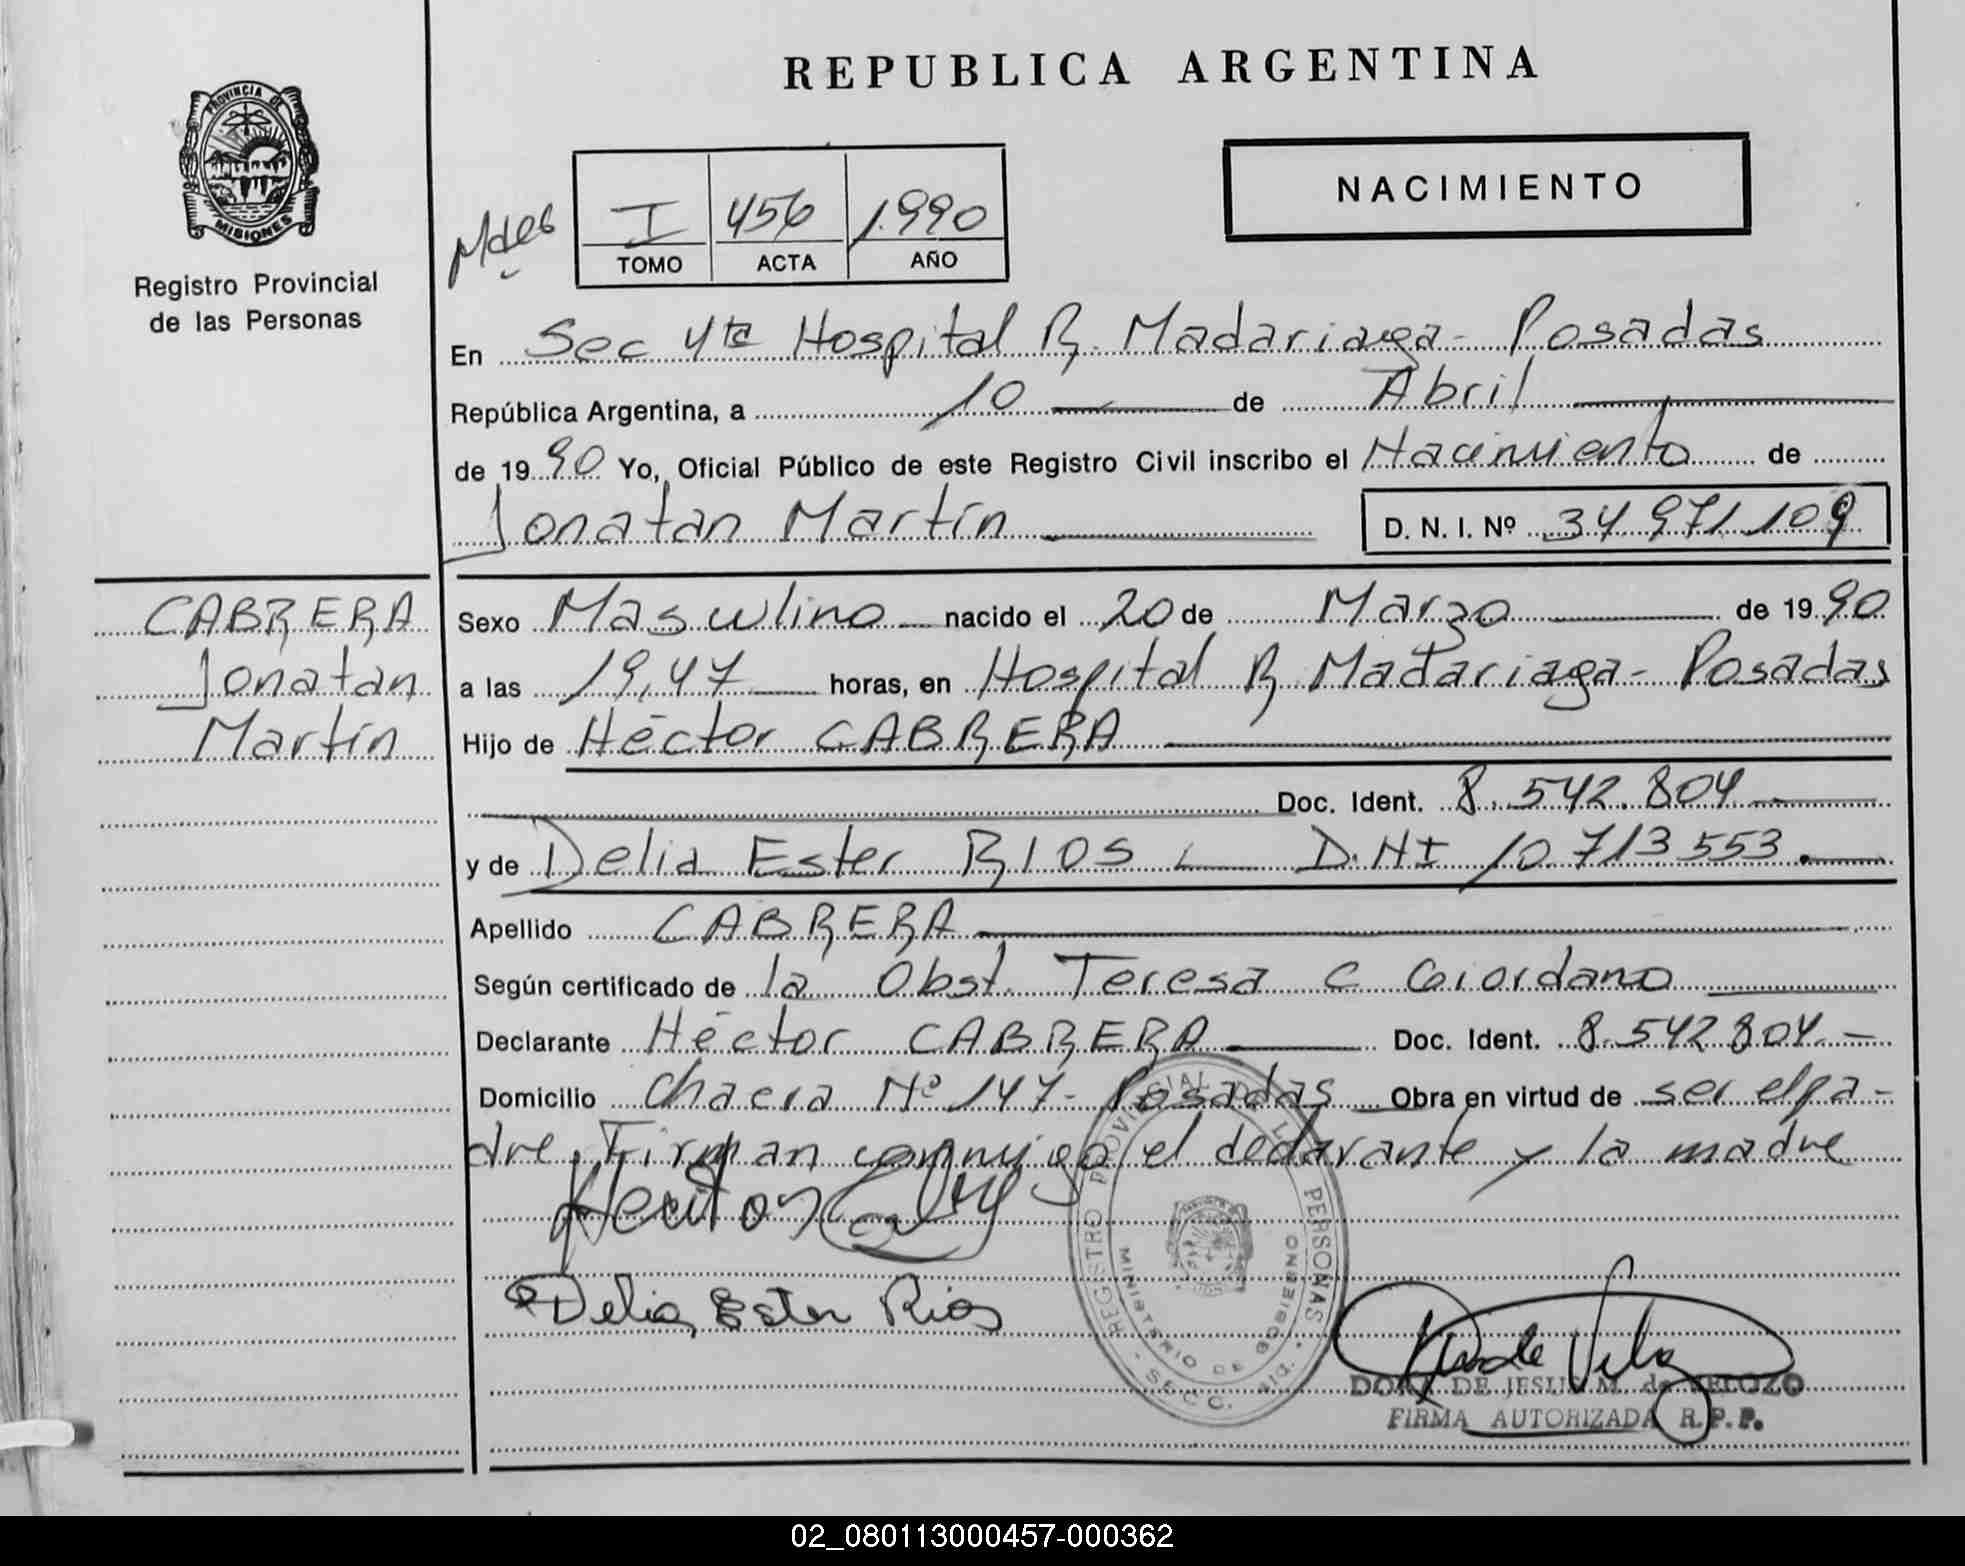 REPUBLICA ARGENTINA
PROVINCIA DE
MISIONES
Registro Provincial
de las Personas
NACIMIENTO
I 456 1.990
TOMO ACTA AÑO
En Sec 4ta Hospital R. Madariaga - Posadas
República Argentina, a 10 de Abril
de 1990 Yo, Oficial Público de este Registro Civil inscribo el Nacimiento de
Jonatan Martín D. N. I. Nº 34 971 109
CABRERA
Jonatan
Martín
Sexo Masculino nacido el 20 de Marzo de 1990
a las 19,47 horas, en Hospital R Madariaga - Posadas
Hijo de Héctor CABRERA
Doc. Ident. 8.542.804
y de Delia Ester RIOS D.NI 10 713 553.
Apellido CABRERA
Según certificado de la Obst. Teresa C Giordano
Declarante Héctor CABRERA Doc. Ident. 8.542 804.-
Domicilio Chacra Nº 147- Posadas Obra en virtud de ser el pa-
dre. Firman conmigo el declarante y la madre
Delia Ester Rios
REGISTRO PROVINCIAL DE LAS PERSONAS
MINISTERIO DE GOBIERNO
DORA DE JESUS M. de VELOZO
FIRMA AUTORIZADA R.P.P.
02_080113000457-000362